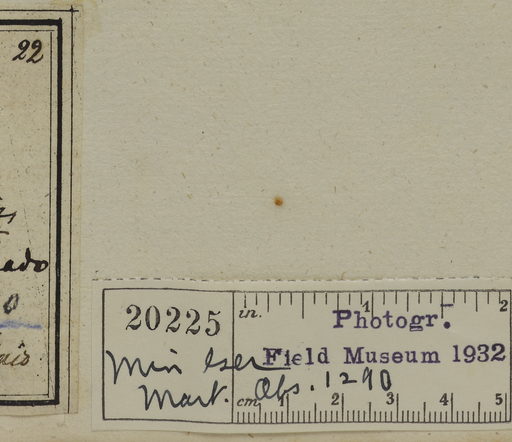 22
ado
0
20225
in.
1
2
Photogr.
Field Museum 1932
Min
Mart. Obs. 1290
cm
1
2
3
4
5